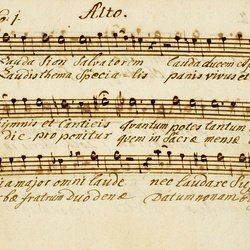 No. 1. Alto.
Lauda Sion Salvatorem Lauda ducem et
Laudis thema specialis panis vivus et
hymnis et canticis quantum potes tantum
die proponitur quem in sacrae mensae
ia major omni laude nec laudare Si
bae fratrum duodenae datum non am